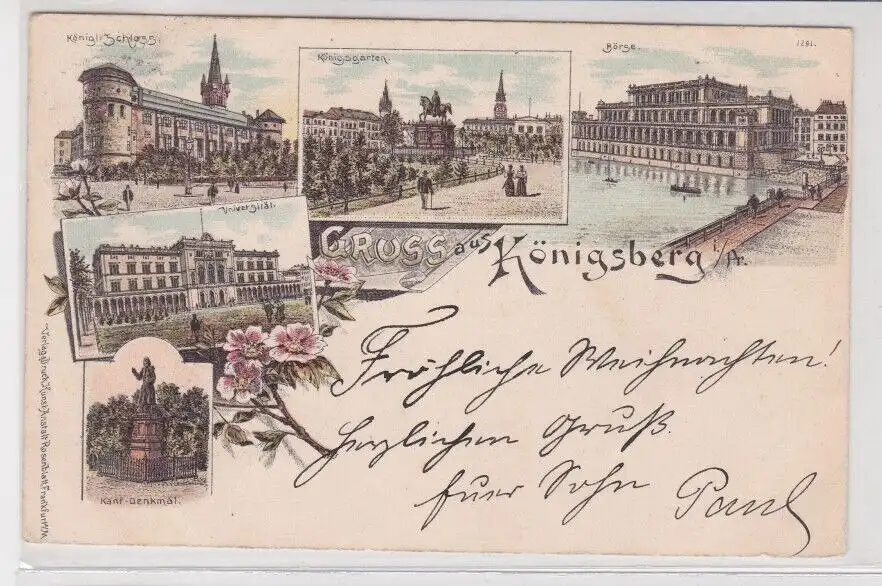 Königl. Schloss.
Königsgarten.
Börse.
1281.
Universität.
GRUSS aus Königsberg i/Pr.
Fröhliche Weihnachten!
herzlichen Gruß.
Euer Sohn Paul
Kant-Denkmal.
Verlag u. Druck, Kunst-Anstalt Rosenblatt, Frankfurt a/M.